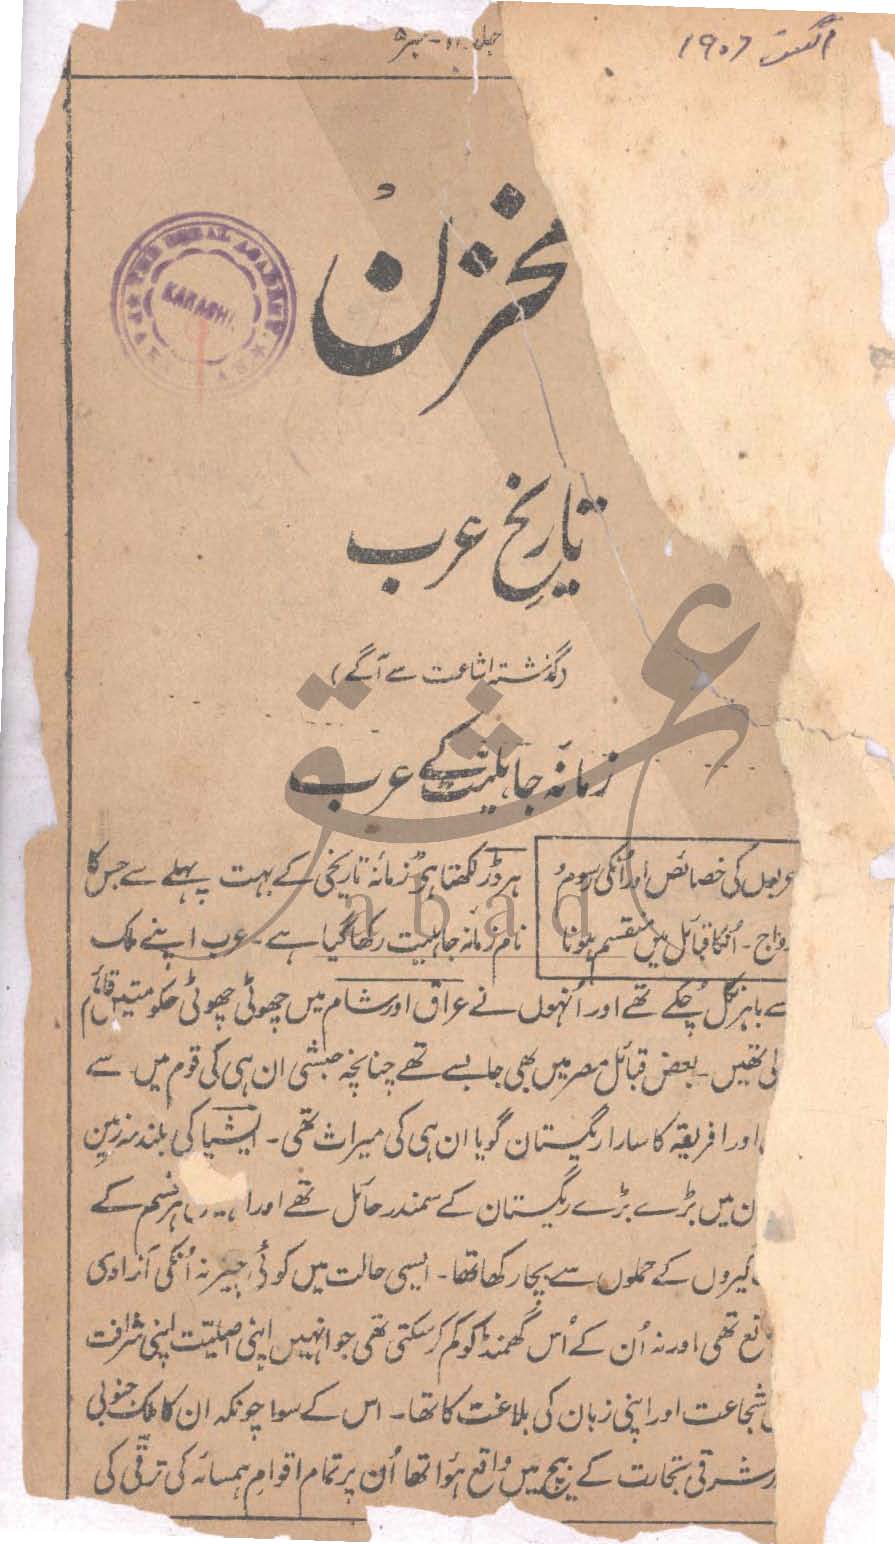 اگست ۱۹۰۶
جلد ۱۱ - نمبر ۵
مخزن
THE IQBAL ACADEMY
KARACHI
تاریخ عرب
(گذشتہ اشاعت سے آگے)
زمانہ جاہلیت کے عرب
عربوں کی خصائص اور اُنکی رسوم و
رواج - اُنکا قبائل میں منقسم ہونا
ہرڈر لکھتا ہو زمانہ تاریخی کے بہت پہلے سے جس کا
نام زمانہ جاہلیت رکھا گیا ہے - عرب اپنے ملک
سے باہر نکل چُکے تھے اور اُنہوں نے عراق اور شام میں چھوٹی چھوٹی حکومتیں قائم
لی تھیں - بعض قبائل مصر میں بھی جا بسے تھے چنانچہ حبشی ان ہی کی قوم میں سے
اور افریقہ کا سارا ریگستان گویا ان ہی کی میراث تھی - ایشیا کی بلند سرزمین
ن میں بڑے بڑے ریگستان کے سمندر حائل تھے اور ہر قسم کے
گیروں کے حملوں سے بچا رکھا تھا - ایسی حالت میں کوئی چیز نہ اُنکی آزادی
انع تھی اور نہ اُن کے اُس گھمنڈ کو کم کر سکتی تھی جو انہیں اپنی اصلیت اپنی شرافت
شجاعت اور اپنی زبان کی بلاغت کا تھا - اس کے سوا چونکہ ان کا ملک جنوبی
ر شرقی تجارت کے بیچ میں واقع ہُوا تھا اُن پر تمام اقوامِ ہمسائہ کی ترقّی کی
عشق
abad